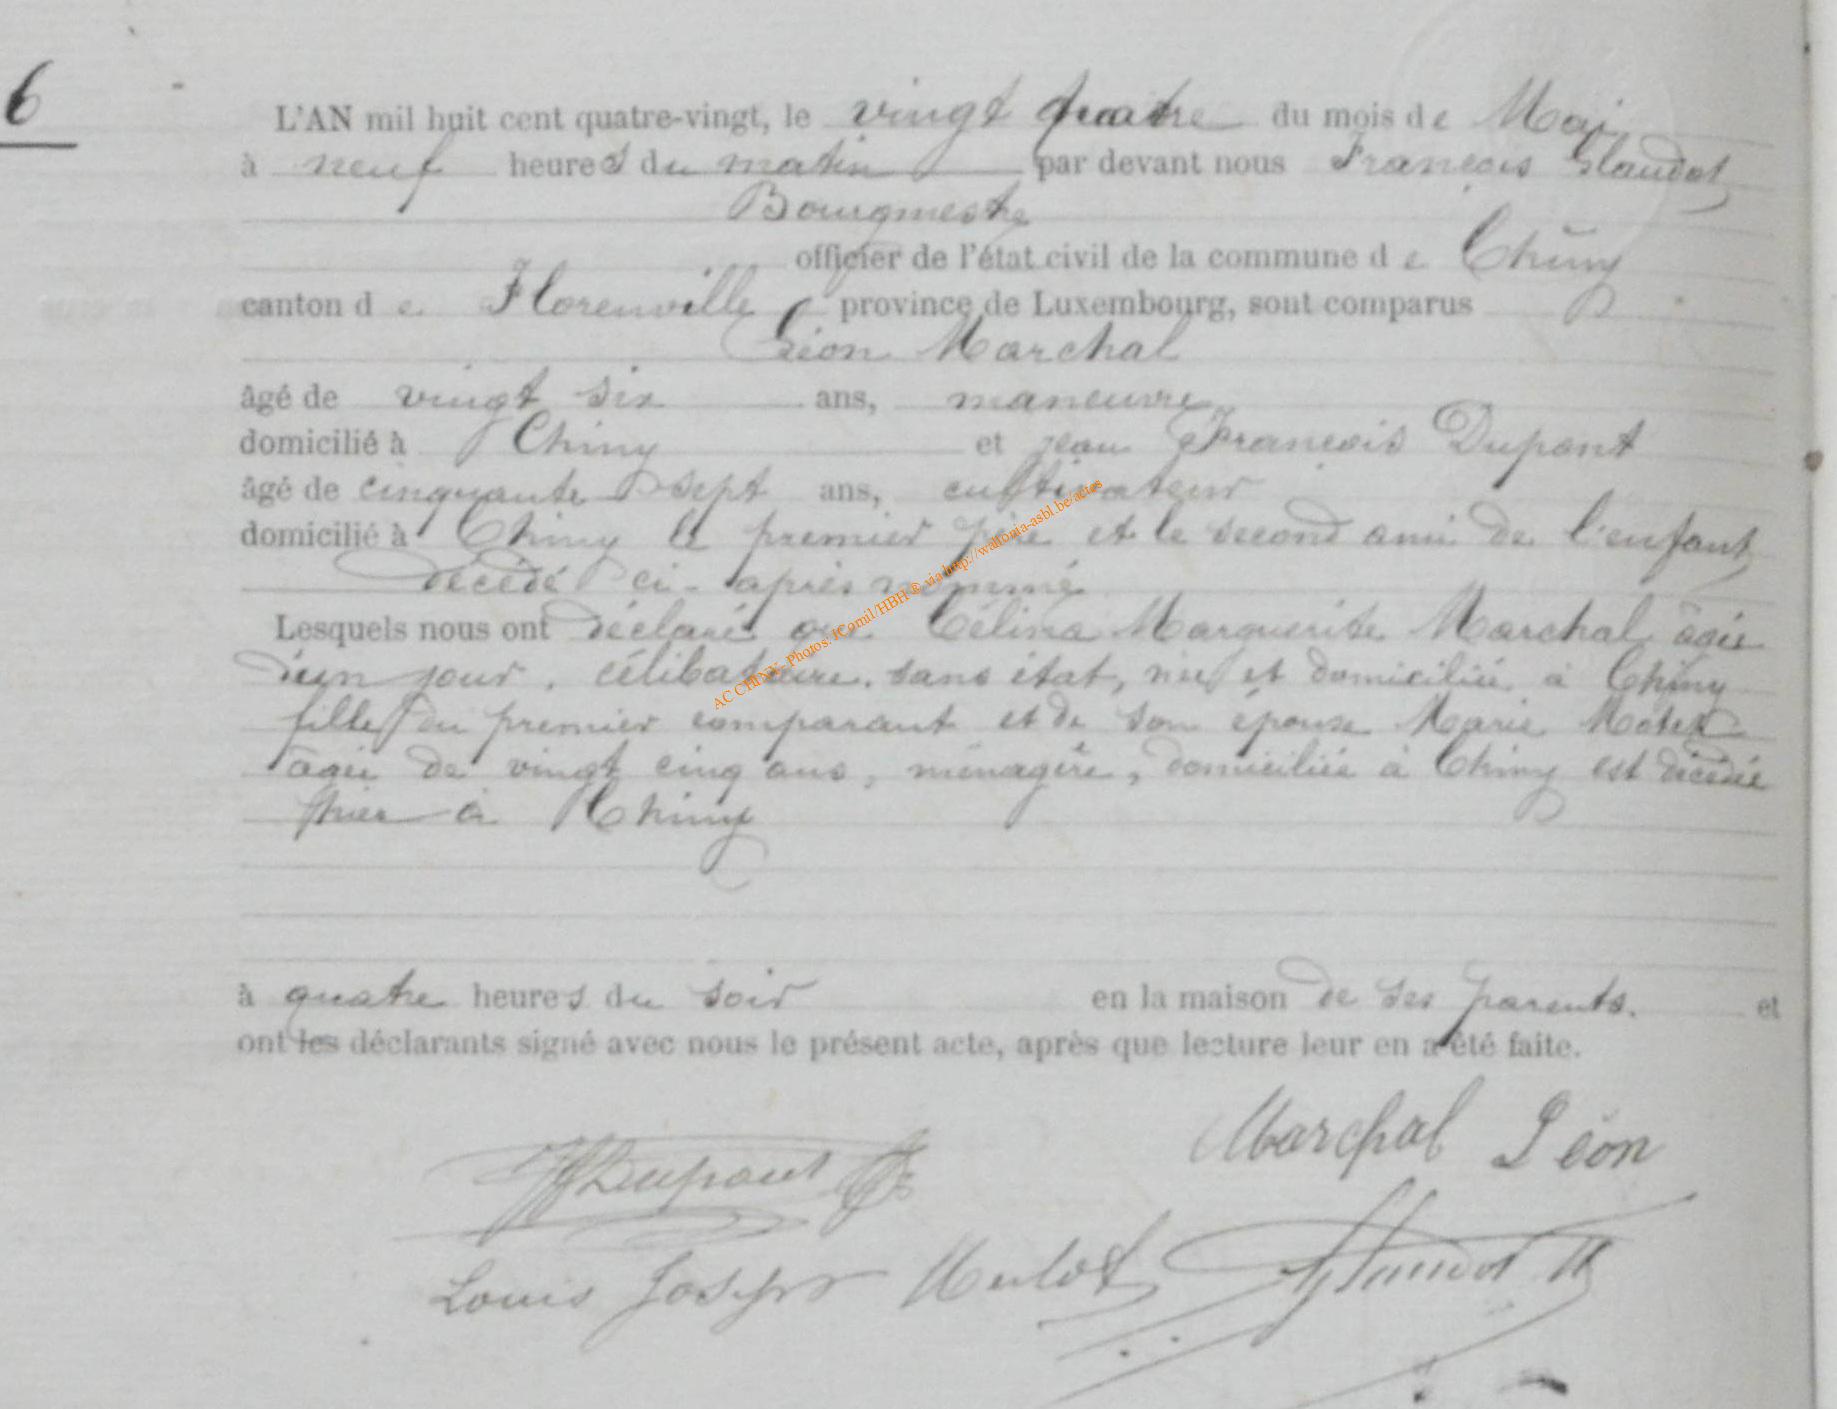 6
L'AN mil huit cent quatre-vingt, le vingt quatre du mois de Mai
à neuf heures du matin par devant nous François Glaudot
Bourgmestre
officier de l'état civil de la commune de Chiny
canton de Florenville province de Luxembourg, sont comparus
Léon Marchal
âgé de vingt six ans, maneuvre
domicilié à Chiny et jean François Dupont
âgé de cinquante sept ans, cultivateur
domicilié à Chiny le premier père et le second ami de l'enfant
décédé ci-après nommé
Lesquels nous ont déclaré que Célina Marguerite Marchal âgée
d'un jour, célibataire, sans état, née et domiciliée à Chiny
fille du premier comparant et de son épouse Marie
âgée de vingt cinq ans, ménagère, domiciliée à Chiny est décédée
hier à Chiny
à quatre heures du soir en la maison de ses parents. et
ont les déclarants signé avec nous le présent acte, après que lecture leur en a été faite.
Marchal Léon
JFDupont
Louis Joseph Mulot Glaudot
AC CHINY - Photos: JComil/HBH ® via http://wallonia-asbl.be/actes